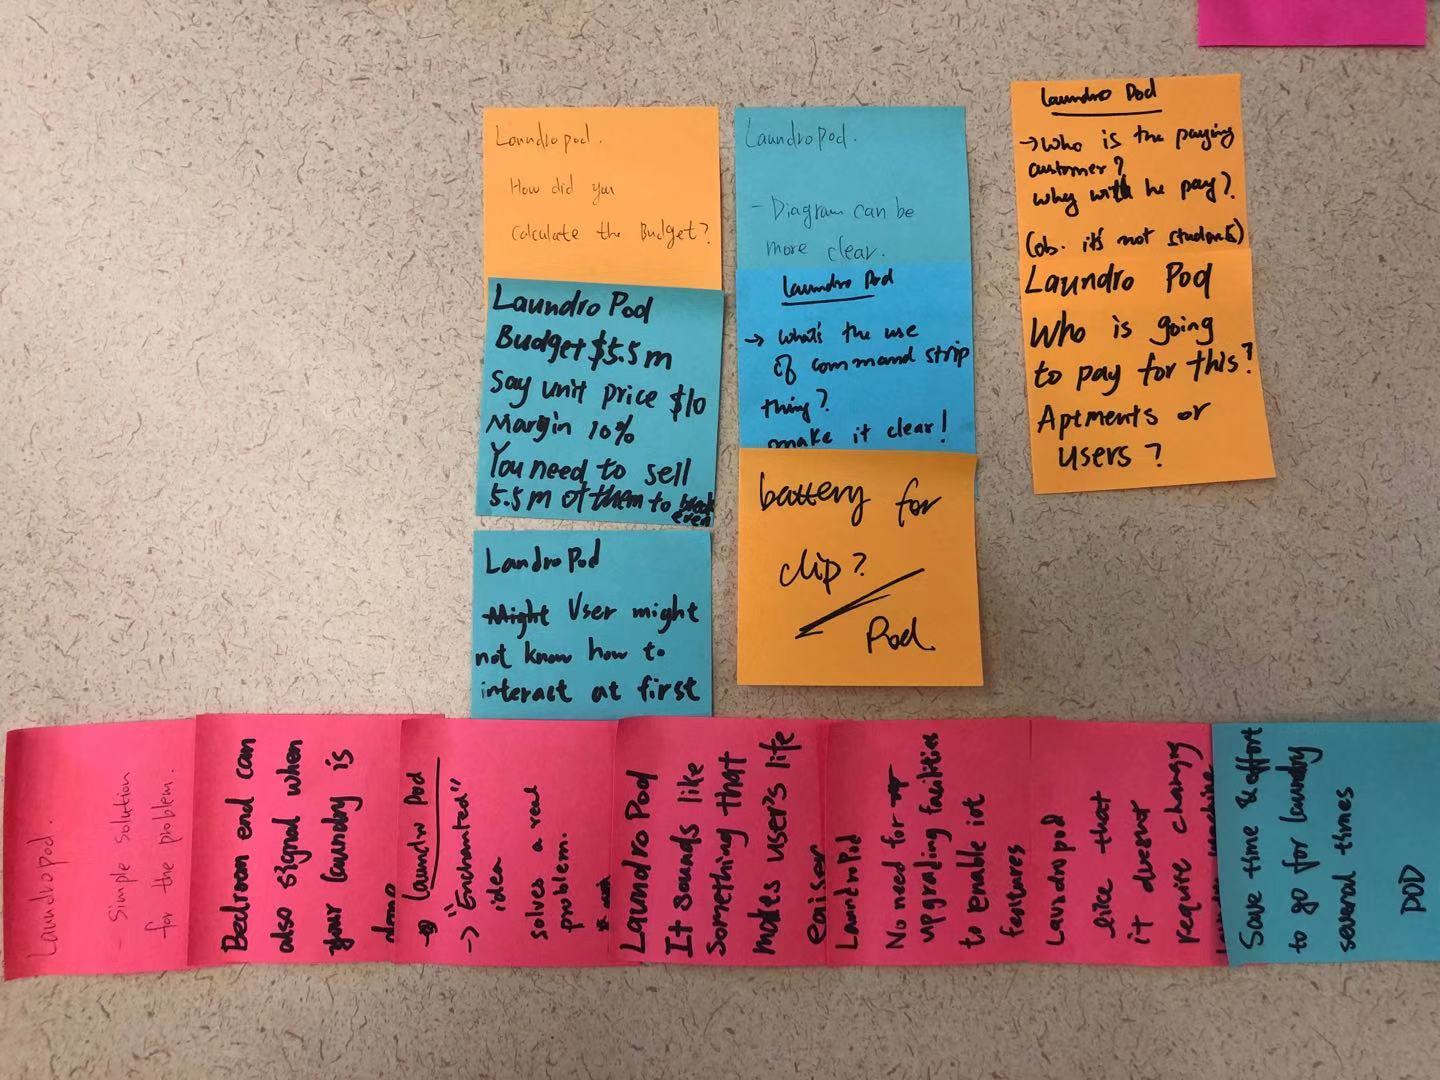 Laundropod.
How did you
calculate the Budget?
Laundro Pod
Budget $5.5 m
Say unit price $10
Margin 10%
You need to sell
5.5 m of them to break
even
Landro Pod
Might User might
not know how to
interact at first
Laundropod.
- Diagram can be
more clear.
Laundro Pod
→ What's the use
of command strip
thing?
make it clear!
battery for
clip?
Pod
Laundro Pod
→ Who is the paying
customer?
Why will he pay?
(ob. it's not students)
Laundro Pod
Who is going
to pay for this?
Aptments or
users?
Laundropod.
- Simple solution
for the problem.
Bedroom end can
also signal when
your laundry is
done
Laundro Pod
→ "Enchanted"
idea
solves a real
problem.
Laundro Pod
It sounds like
something that
makes user's life
easier
LaundroPod
No need for
upgrading facilities
to enable iot
features
Laundropod
like that
it doesnt
require changing
Save time & effort
to go for laundry
several times
POD